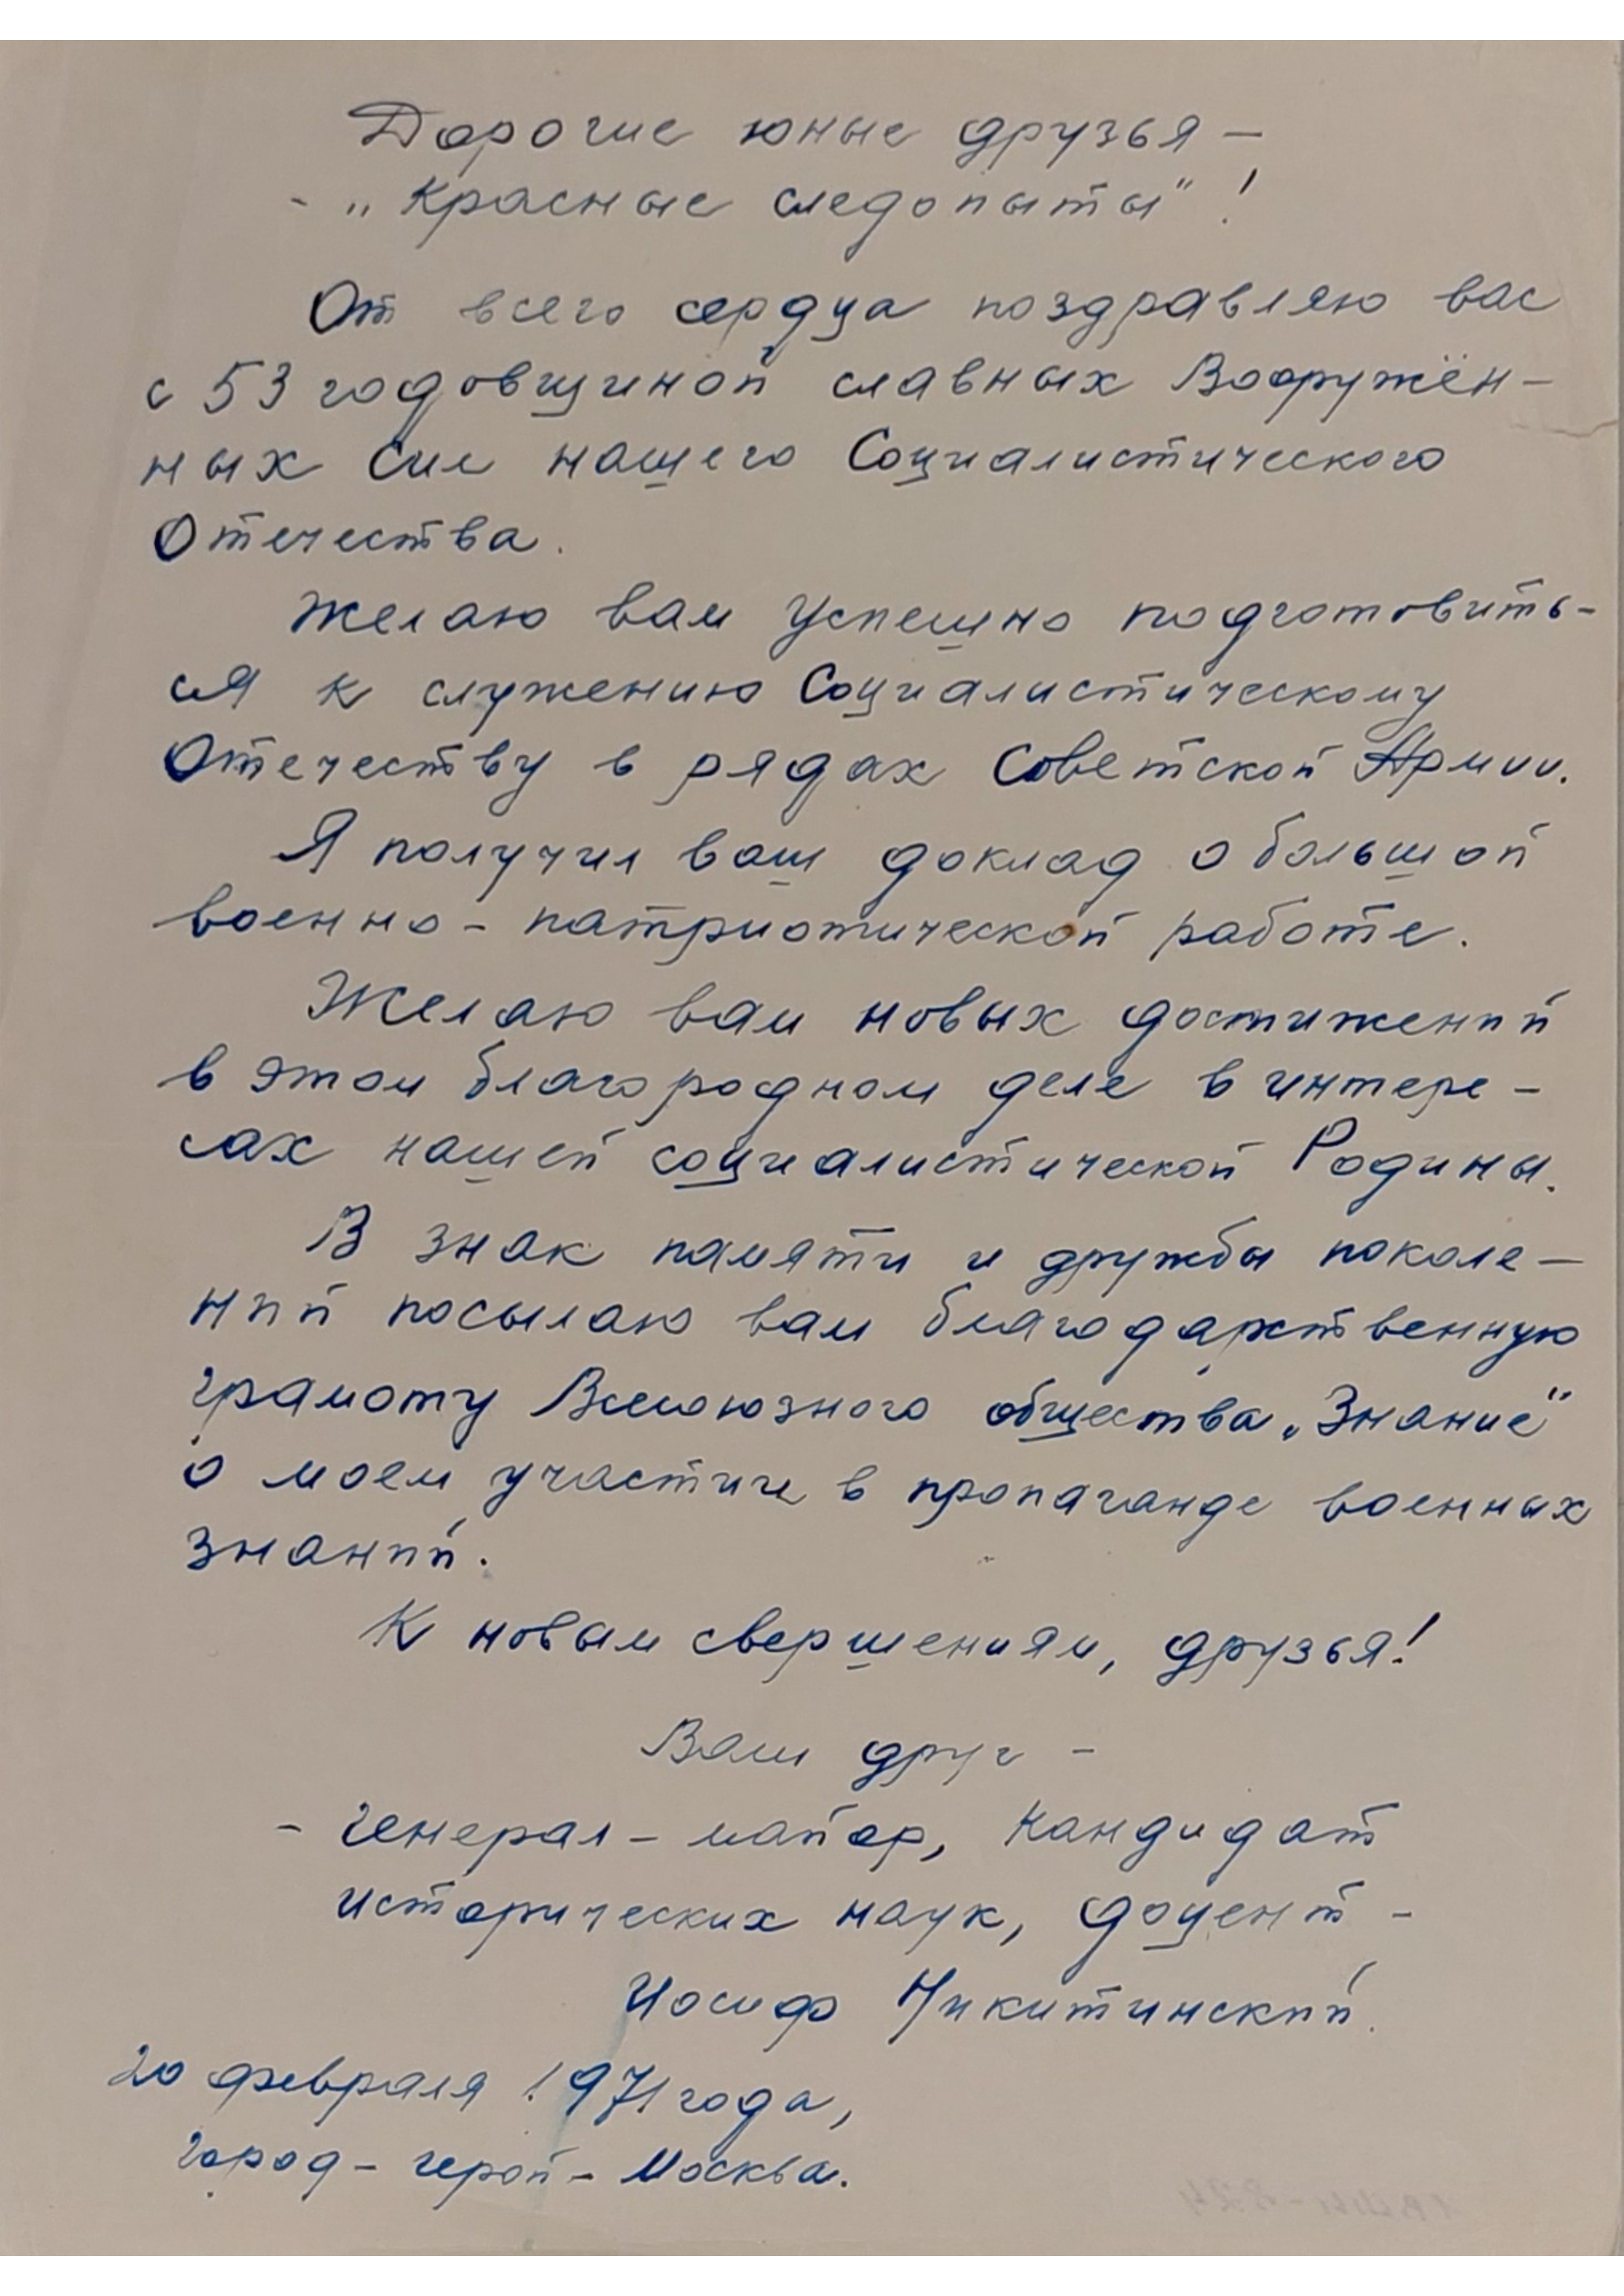 Дорогие юные друзья –
- „Красные следопыты"!
От всего сердца поздравляю вас
с 53 годовщиной славных Вооружён-
ных Сил нашего Социалистического
Отечества.
Желаю вам успешно подготовить-
ся к служению Социалистическому
Отечеству в рядах Советской Армии.
Я получил ваш доклад о большой
военно-патриотической работе.
Желаю вам новых достижений
в этом благородном деле в интере-
сах нашей социалистической Родины.
В знак памяти и дружбы поколе-
ний посылаю вам благодарственную
грамоту Всесоюзного общества „Знание"
о моем участии в пропаганде военных
знаний.
К новым свершениям, друзья!
Ваш друг –
- генерал-майор, кандидат
исторических наук, доцент –
Иосиф Никитинский.
20 февраля 1971 года,
город-герой-Москва.